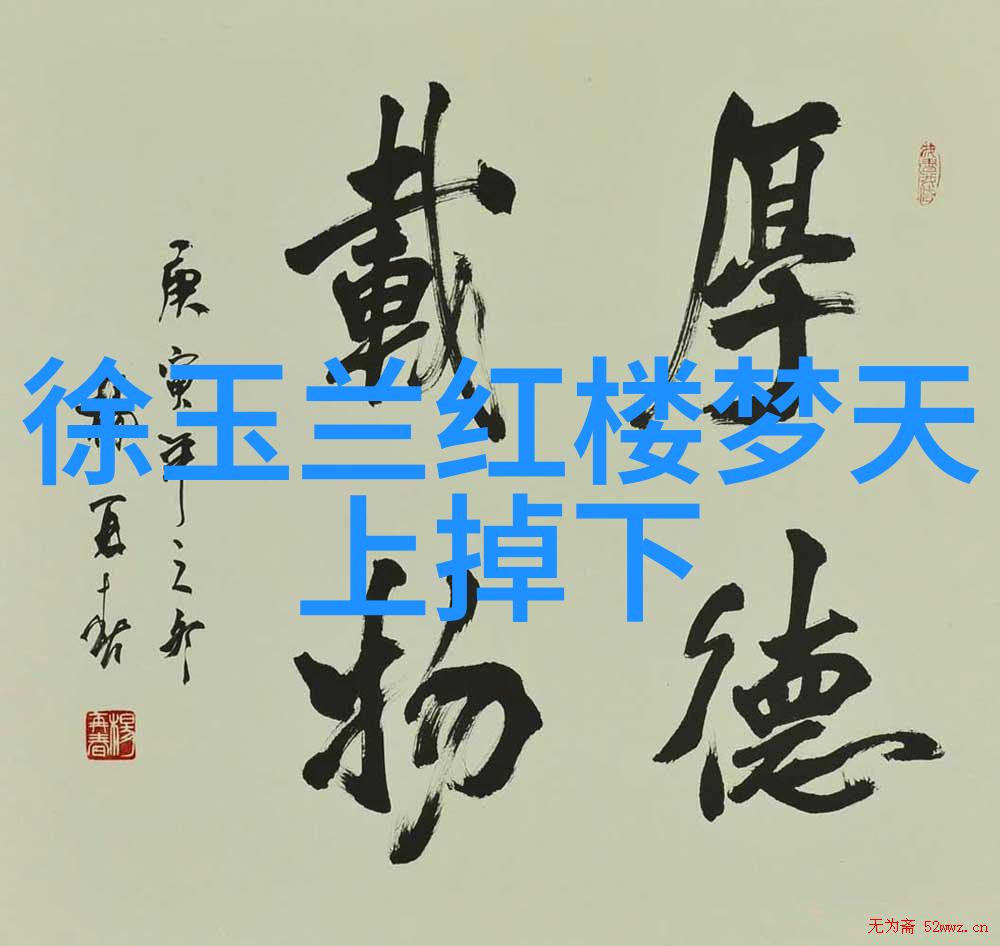 厚德
載物
庚寅
楊
再春
徐玉兰红楼梦天
上掉下
无为斋 52wwz.cn